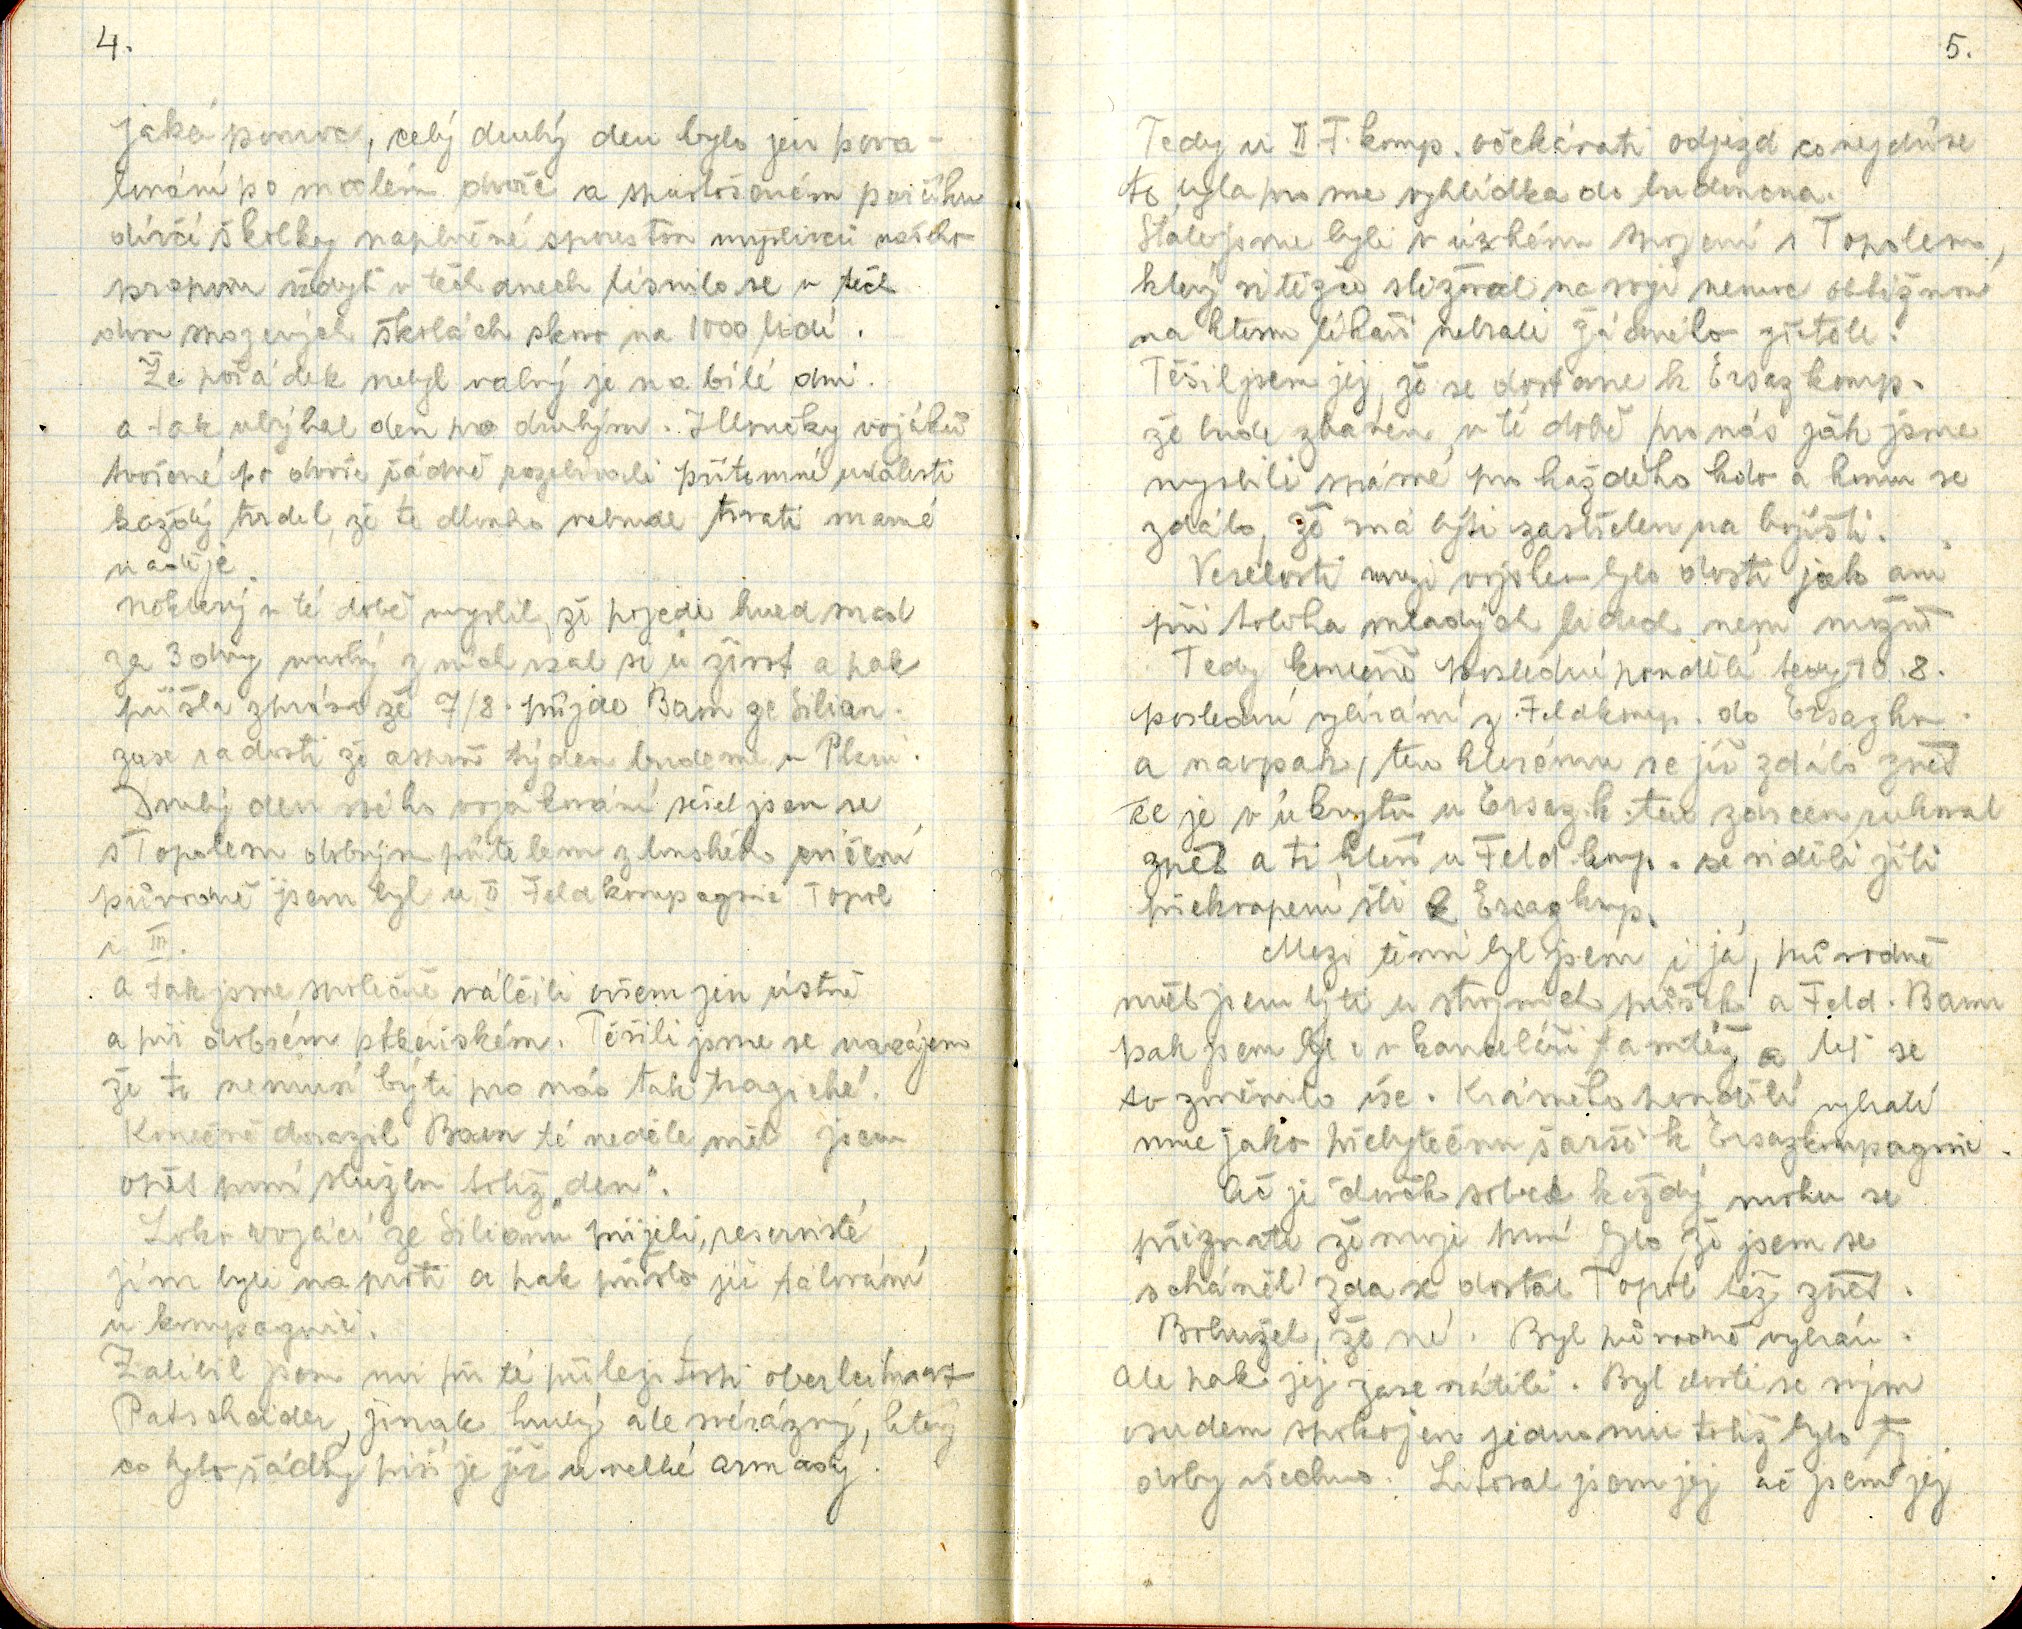 4.
jaká pomoc, celý druhý den bylo jen pova-
lování po malém dvoře a spustošeném parčíku
dívčí školky naplněné spoustou
praporu vždyť v těch dnech tísnilo se v těch
dvou spojených školách skoro na 1000 lidí.
Že pořádek nebyl valný je na bílé dni.
a tak ubýhal den po druhým. Hloučky vojáků
tvořené po dvoře řádně rozebírali přítomné události
každý tvrdil, že to dlouho nebude trvati marné
naděje.
některý v té době myslil, že pojede hned snad
za 3 dny mnohý z nich vzal si i život a pak
přišla zpráva že 7/8. přijde Baon ze Silian.
zase radosti že asi za týden budeme v Plzni.
Druhý den svého vojakování sešel jsem se
s Topolem dobrým přítelem z loňského cvičení
původně jsem byl u II Feldkompagnie Topol
u III.
a tak jsme společně válčili ovšem jen ústně
a při dobrém plzeňském. Těšili jsme se navzájem
že to nemusí býti pro nás tak tragické.
Konečně dorazil Baon té neděle měl jsem
opět první službu totiž „den".
Loko vojáci ze Silianu přijeli, reservisté
jim byli naproti a pak přišlo již
u kompagnií.
Zalíbil jsem mi při té příležitosti oberleutnant
Patscheider, jinak hrubý ale svérázný, který
co bylo řádky píši je již u velké armády.
5.
Tedy u II. F. komp. očekávati odjezd co nejdříve
to byla pro mne vyhlídka do budoucna.
Stále jsme byli v úzkém spojení s Topolem,
který si těžce stěžoval na svoji nemoc obtížnou
na kterou lékaři nebrali žádného zřetele.
Těšil jsem jej, že se dostane k Ersazkomp.
že bude zbaven v té době pro nás jak jsme
myslili správné pro každého kdo a komu se
zdálo, že má býti zastřelen na bojišti.
Veselosti mezi vojskem bylo dosti jak ani
při tolika mladých lidech není možné
Tedy konečně poslední pondělí tedy 10.8.
poslední vybírání z Feldkomp. do Ersazko.
a naopak, ten kterému se již zdálo zpět
že je v úkrytu u Ersaz.k. ten zdrcen rukoval
zpět a ti kteří u Feld.kmp. se viděli jíti
překvapeni šli k Ersazkmp.
Mezi těmi byl jsem i já, původně
měl jsem býti u strojních pušek a Feld. Baonu
pak jsem byl i v kanceláři tamtéž a teď se
to změnilo vše. Krásného pondělí vybrali
mne jako přebytečnou šarži k Ersazkompagnii.
Ač je člověk sobec každý mohu se
přiznati že moje první bylo, že jsem se
scháněl zda se dostal Topol též zpět.
Bohužel, že né. Byl původně vybrán.
Ale pak jej zase vrátili. Byl dosti se svým
osudem spokojen jednomu totiž bylo té
doby všechno. Litoval jsem jej ač jsem jej